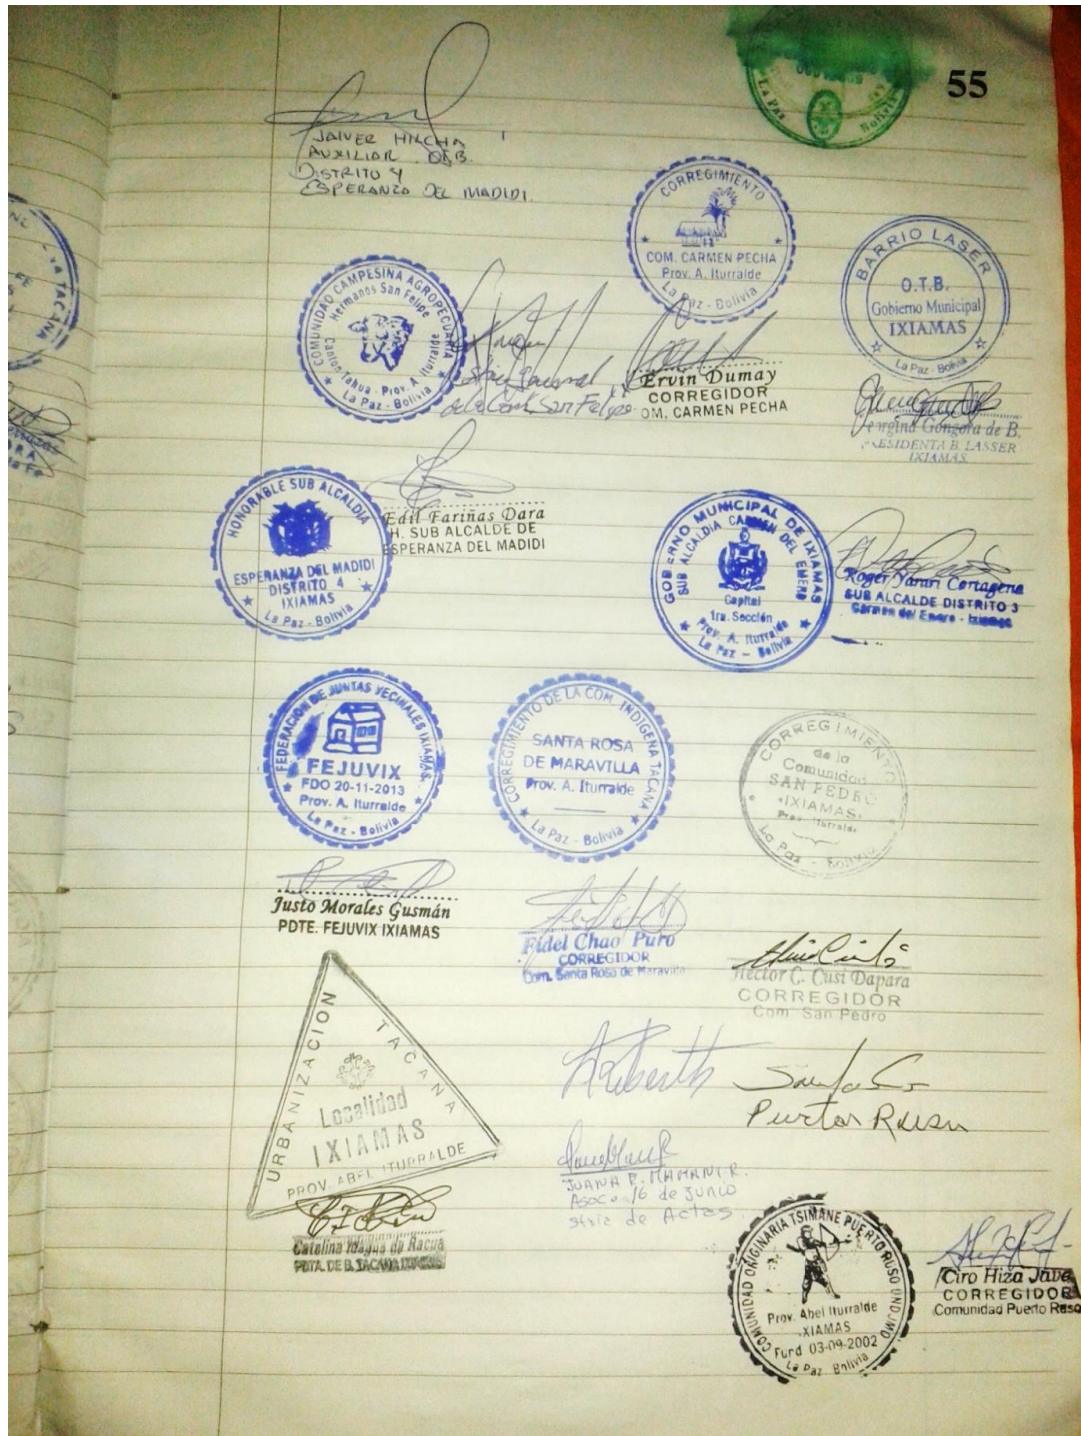 55
La Paz
Bolivia
JAIVER HILCHA
AUXILIAR OTB.
DISTRITO 4
ESPERANZA DEL MADIDI.
CORREGIMIENTO
COM. CARMEN PECHA
Prov. A. Iturralde
La Paz - Bolivia
BARRIO LASER
O.T.B.
Gobierno Municipal
IXIAMAS
La Paz - Bolivia
COMUNIDAD CAMPESINA AGROPECUARIA
Hermanos San Felipe
Canton Tahua - Prov. A. Iturralde
La Paz - Bolivia
de la Com. San Felipe
Ervin Dumay
CORREGIDOR
COM. CARMEN PECHA
Gongora de B.
PRESIDENTA B. LASSER
IXIAMAS
HONORABLE SUB ALCALDIA
ESPERANZA DEL MADIDI
DISTRITO 4
IXIAMAS
La Paz - Bolivia
Edil Fariñas Dara
H. SUB ALCALDE DE
ESPERANZA DEL MADIDI
GOBIERNO MUNICIPAL DE IXIAMAS
SUB ALCALDIA CARMEN DEL EMERO
Capital
1ra. Sección
Prov. A. Iturralde
La Paz - Bolivia
Roger Yarari Cartagena
SUB ALCALDE DISTRITO 3
Carmen del Emero - Ixiamas
FEDERACION DE JUNTAS VECINALES IXIAMAS
FEJUVIX
FDO 20-11-2013
Prov. A. Iturralde
La Paz - Bolivia
CORREGIMIENTO DE LA COM. INDIGENA TACANA
SANTA ROSA
DE MARAVILLA
Prov. A. Iturralde
La Paz - Bolivia
CORREGIMIENTO
de la
Comunidad
SAN PEDRO
IXIAMAS
Prov. Iturralde
La Paz - Bolivia
Justo Morales Gusmán
PDTE. FEJUVIX IXIAMAS
Fidel Chao Puro
CORREGIDOR
Com. Santa Rosa de Maravilla
Hector C. Cusi Dapara
CORREGIDOR
Com. San Pedro
URBANIZACION TACANA
Localidad
IXIAMAS
PROV. ABEL ITURRALDE
JUANA P. MAMANI R.
Asoc. 16 de JUNIO
stria de Actas
Catelina
PDTA. DE B. TACANA
COMUNIDAD ORIGINARIA TSIMANE PUERTO RUSO UNDUMO
Prov. Abel Iturralde
IXIAMAS
Fund 03-09-2002
La Paz - Bolivia
Ciro Hiza Jave
CORREGIDOR
Comunidad Puerto Ruso